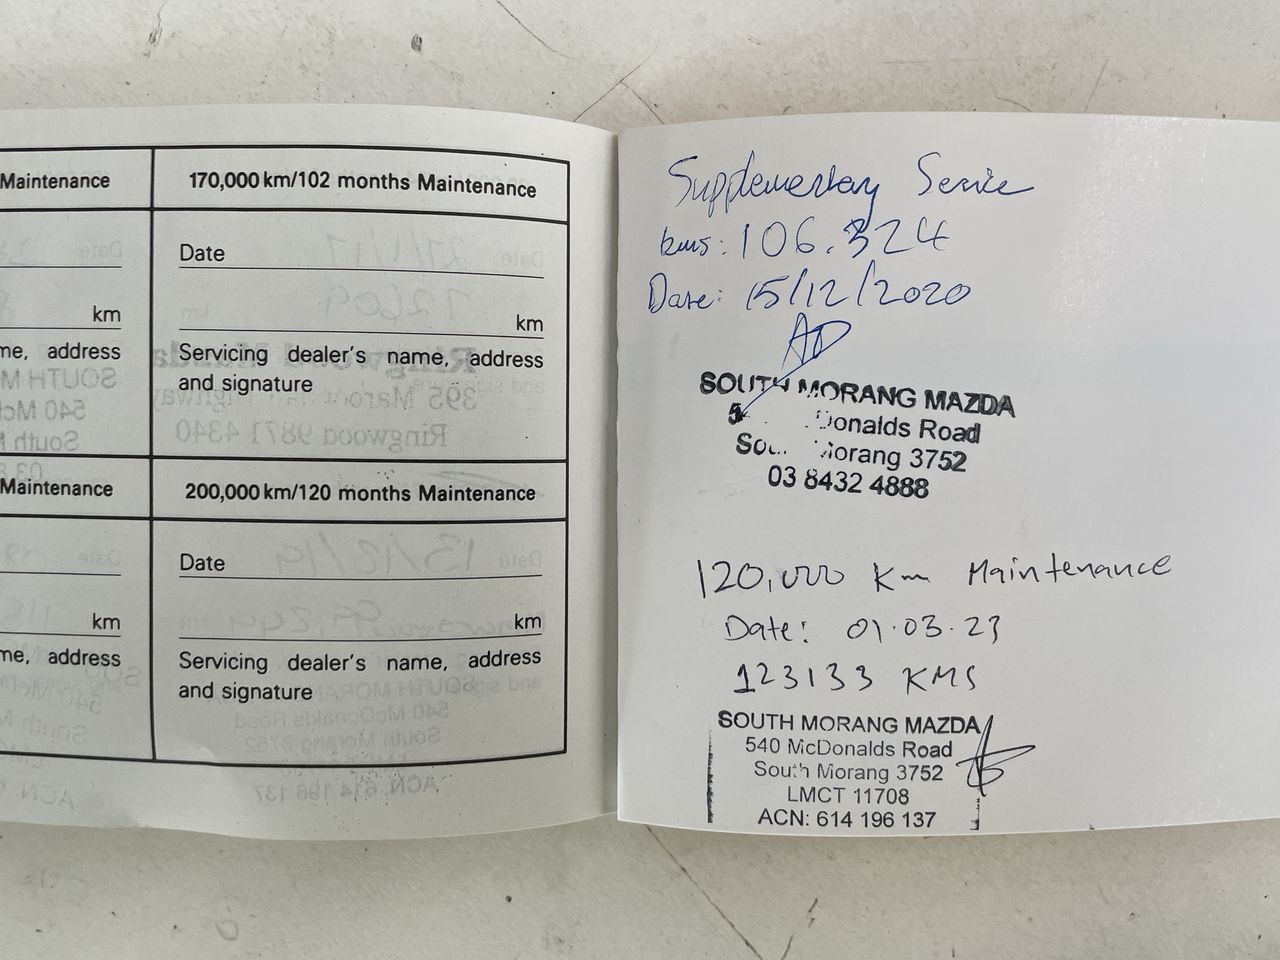 Maintenance
km
me, address
Maintenance
km
me, address
170,000 km/102 months Maintenance
Date
km
Servicing dealer's name, address
and signature
200,000 km/120 months Maintenance
Date
km
Servicing dealer's name, address
and signature
Supplementary Service
kms: 106.324
Date: 15/12/2020
AD
SOUTH MORANG MAZDA
5 Donalds Road
Sou Morang 3752
03 8432 4888
120,000 Km Maintenance
Date: 01.03.23
123133 KMS
SOUTH MORANG MAZDA
540 McDonalds Road
South Morang 3752
LMCT 11708
ACN: 614 196 137